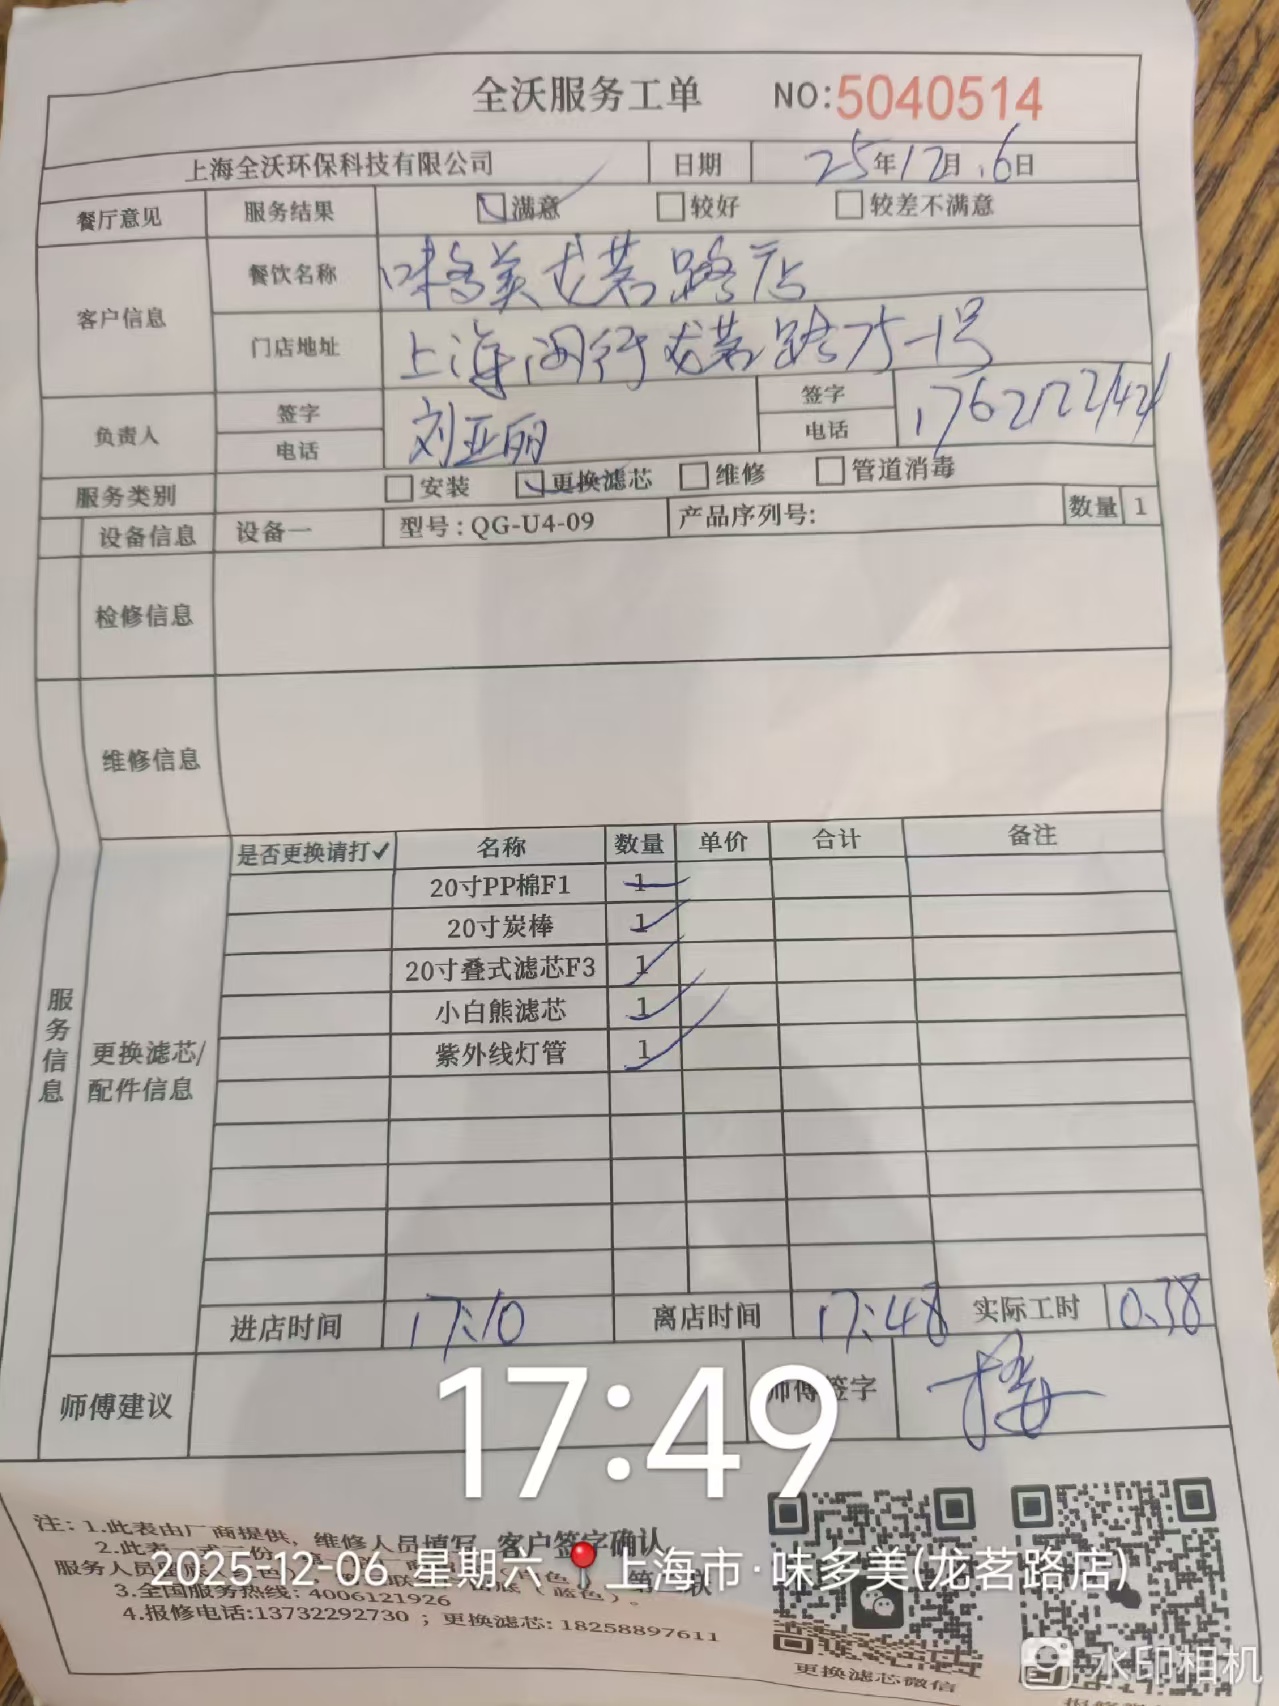 全沃服务工单 NO:5040514
上海全沃环保科技有限公司 日期 25年12月6日
餐厅意见 服务结果 满意 较好 较差不满意
客户信息 餐饮名称 味多美龙茗路店
门店地址 上海闵行龙茗路75-1号
负责人 签字 电话 刘亚丽 签字 电话
服务类别 安装 更换滤芯 维修 管道消毒
设备信息 设备一 型号:QG-U4-09 产品序列号: 数量 1
检修信息
维修信息
服务信息
更换滤芯/配件信息
是否更换请打✓ 名称 数量 单价 合计 备注
20寸PP棉F1 1
20寸炭棒 1
20寸叠式滤芯F3 1
小白熊滤芯 1
紫外线灯管 1
进店时间 17:10 离店时间 17:48 实际工时 0.38
师傅建议 师傅签字
17:49
注: 1.此表由厂商提供, 维修人员填写, 客户签字确认
2.此表一式二份
服务人员
3.全国服务热线: 4006121926
4.报修电话:13732292730 ; 更换滤芯: 18258897611
2025-12-06 星期六 上海市·味多美(龙茗路店)
更换滤芯微信
水印相机